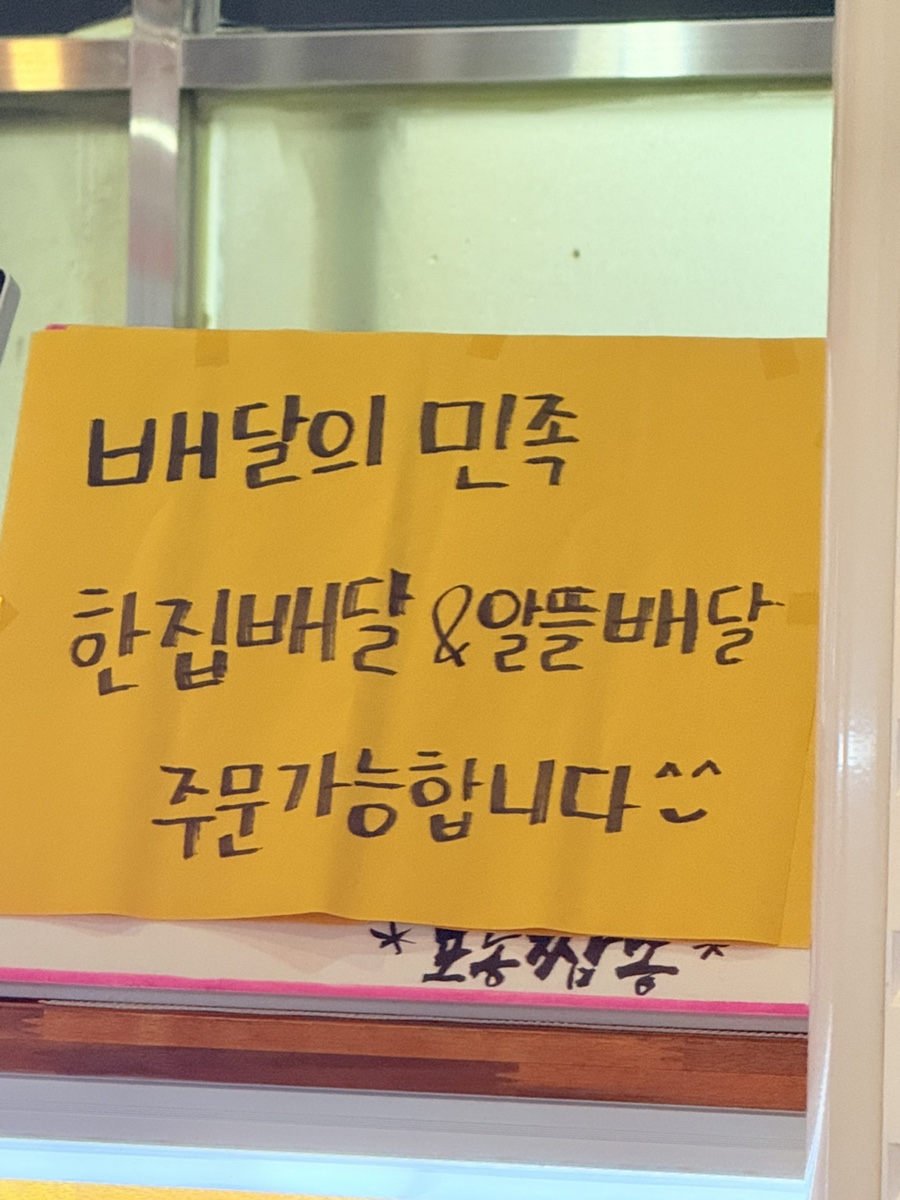 배달의 민족
한집배달 & 알뜰배달
주문가능합니다 ^^